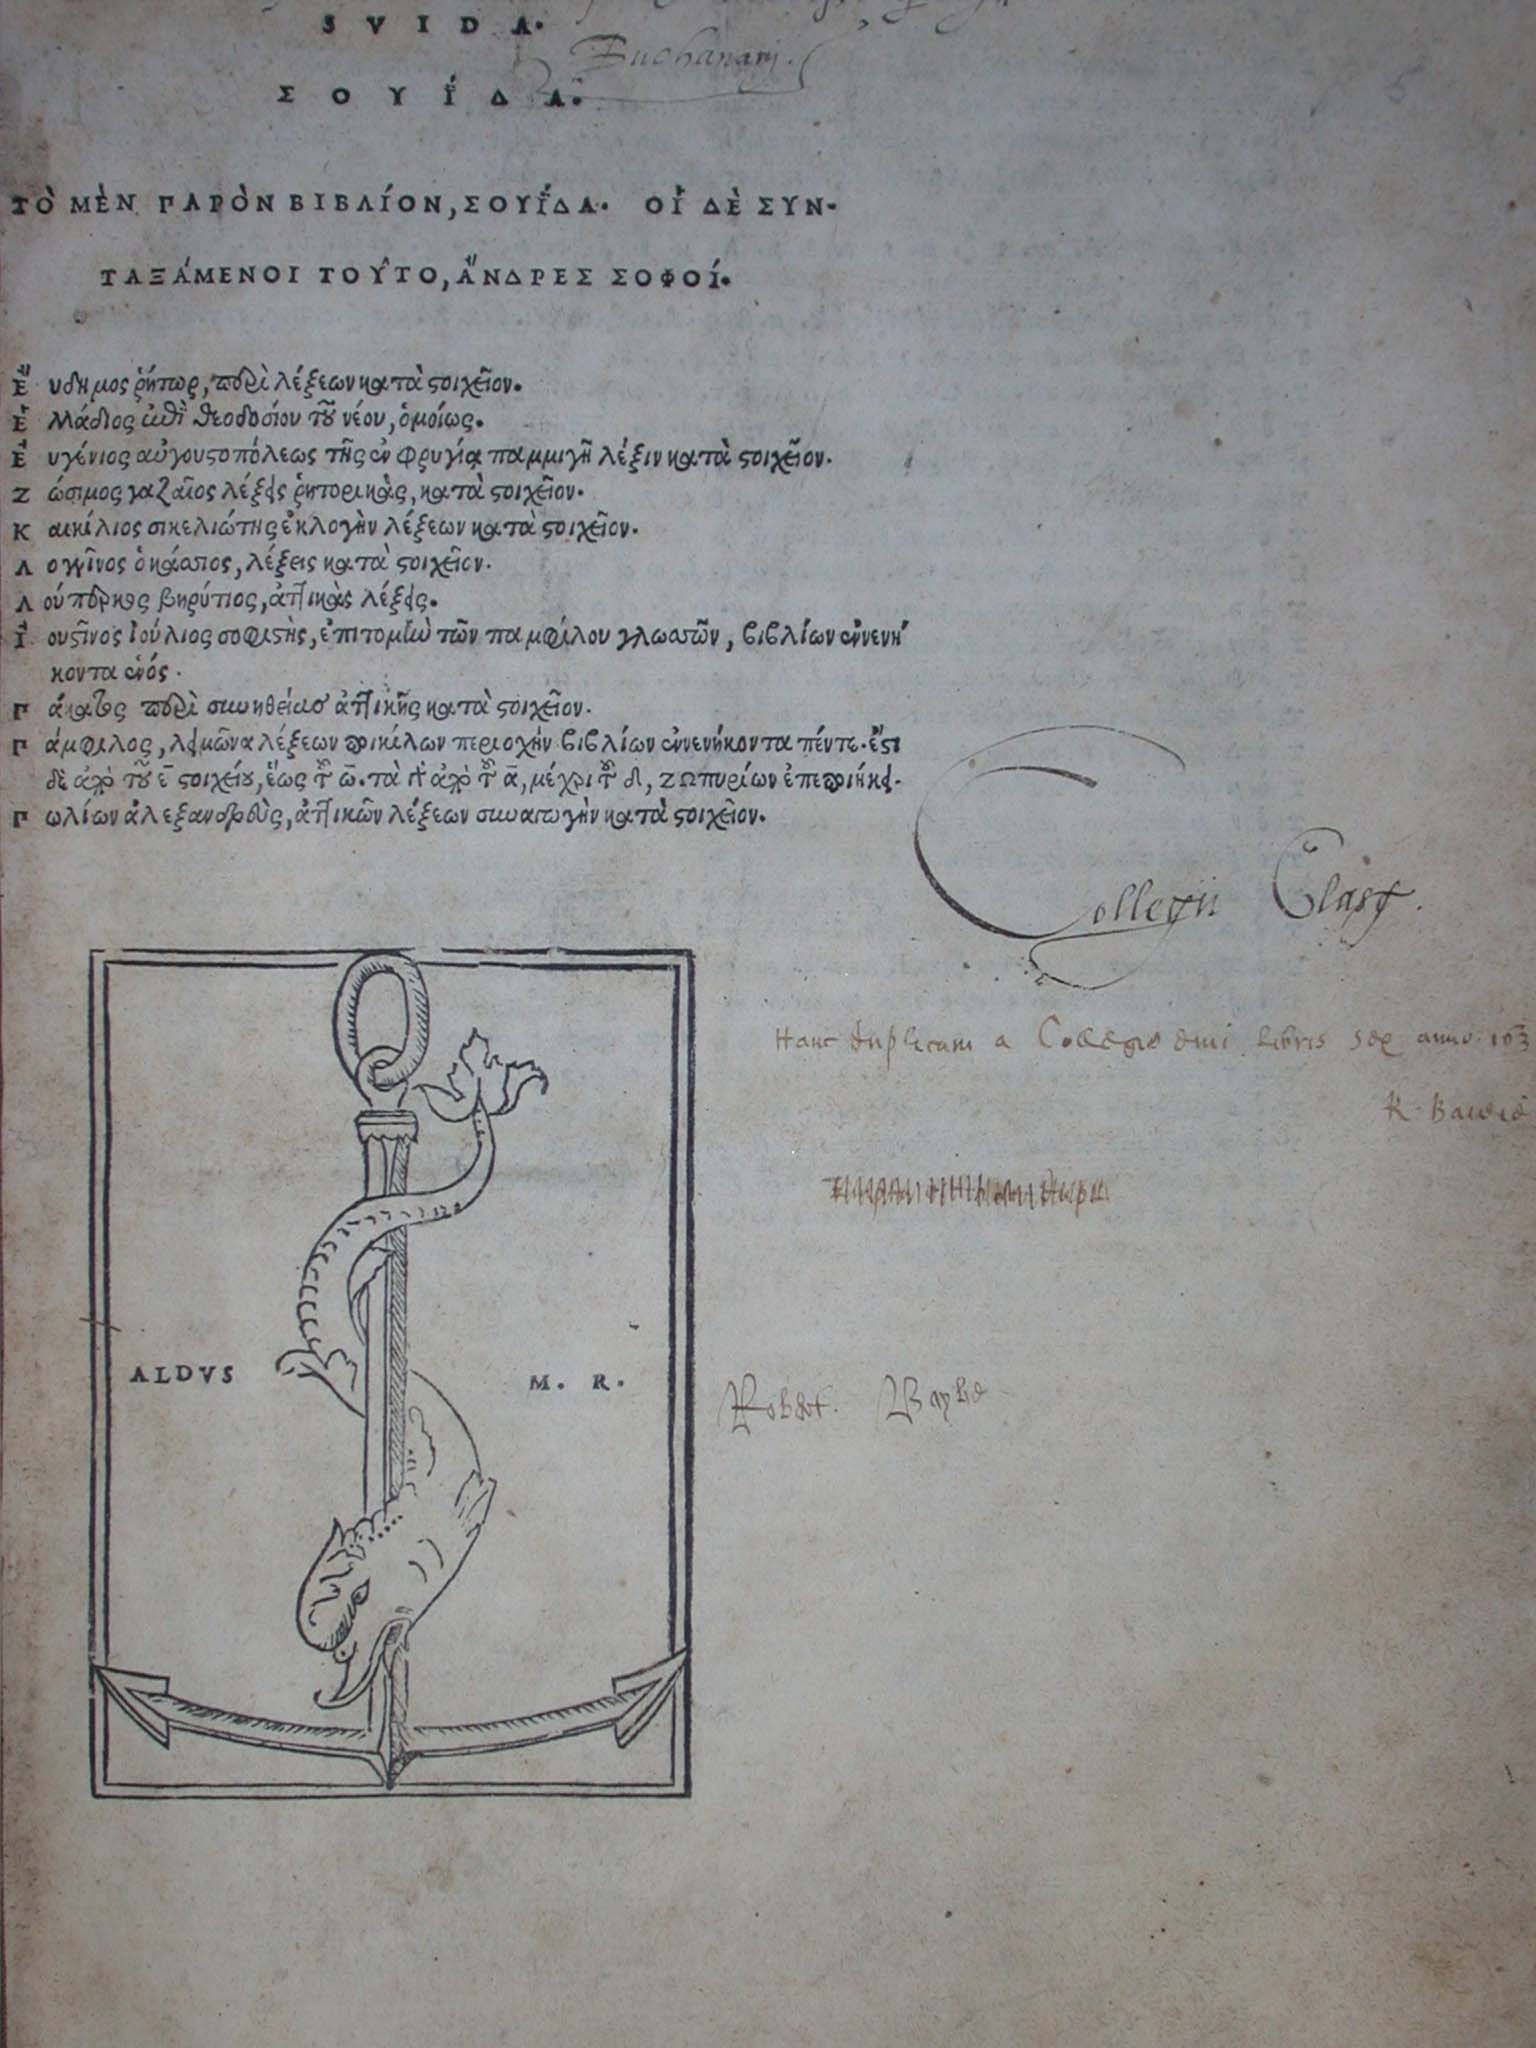 SVIDA.
Buchanani.
ΣΟΥΐΔΑ.
ΤῸ ΜῈΝ ΠΑΡῸΝ ΒΙΒΛΊΟΝ, ΣΟΥΐΔΑ. ΟἹ ΔῈ ΣΥΝ-
ΤΑΞΆΜΕΝΟΙ ΤΟΥ͂ΤΟ, ἌΝΔΡΕΣ ΣΟΦΟΊ.
Εὔδημος ῥήτωρ, περὶ λέξεων κατὰ στοιχεῖον.
Ἑλλάδιος ἐπὶ θεοδοσίου τοῦ νέου, ὁμοίως.
Εὐγένιος αὐγουστοπόλεως τῆς ἐν φρυγίᾳ παμμιγῆ λέξιν κατὰ στοιχεῖον.
Ζώσιμος γαζαῖος λέξεις ῥητορικὰς, κατὰ στοιχεῖον.
Καικίλιος σικελιώτης ἐκλογὴν λέξεων κατὰ στοιχεῖον.
Λογγῖνος ὁ κάσσιος, λέξεις κατὰ στοιχεῖον.
Λούπερκος βηρύτιος, ἀττικὰς λέξεις.
Ἰουστῖνος ἰούλιος σοφιστὴς, ἐπιτομὴν τῶν παμφίλου γλωσσῶν, βιβλίων ἐννενή
κοντα ἑνός.
Πάκατος περὶ συνηθείας ἀττικῆς κατὰ στοιχεῖον.
Πάμφιλος, λειμῶνα λέξεων ποικίλων περιοχὴν βιβλίων ἐννενήκοντα πέντε. ἔστι
δὲ ἀπὸ τοῦ ε̄ στοιχείου, ἕως τοῦ ω̄. τὰ γὰρ ἀπὸ τοῦ ᾱ, μέχρι τοῦ δ, ζωπυρίων ἐπεποιήκει.
Πωλίων ἀλεξανδρεὺς, ἀττικῶν λέξεων συναγωγὴν κατὰ στοιχεῖον.
Collegii Glasg.
Hanc duplicam a Collegio emi libris sex anno 163
R. Baillie
ALDVS M. R.
Robert Baylie